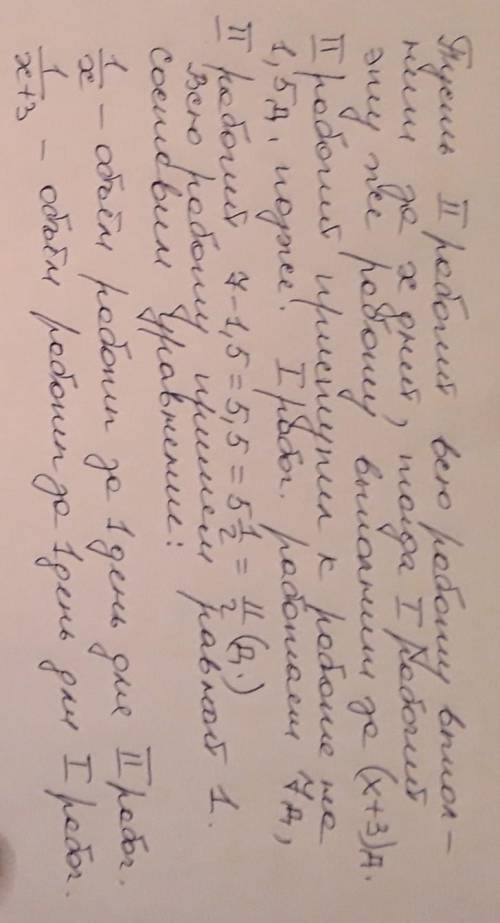 Пусть II рабочий всю работу выпол-
нит за x дней, тогда I рабочий
эту же работу выполнит за (x+3)д.
II рабочий приступил к работе на
1,5 д. позже. I рабоч. работает 7д,
II рабочий 7-1,5=5,5=5 1/2 = 11/2 (д.)
Всю работу примем равной 1.
Составим уравнение:
1/x - объём работы за 1 день для II рабоч.
1/(x+3) - объём работы за 1 день для I рабоч.